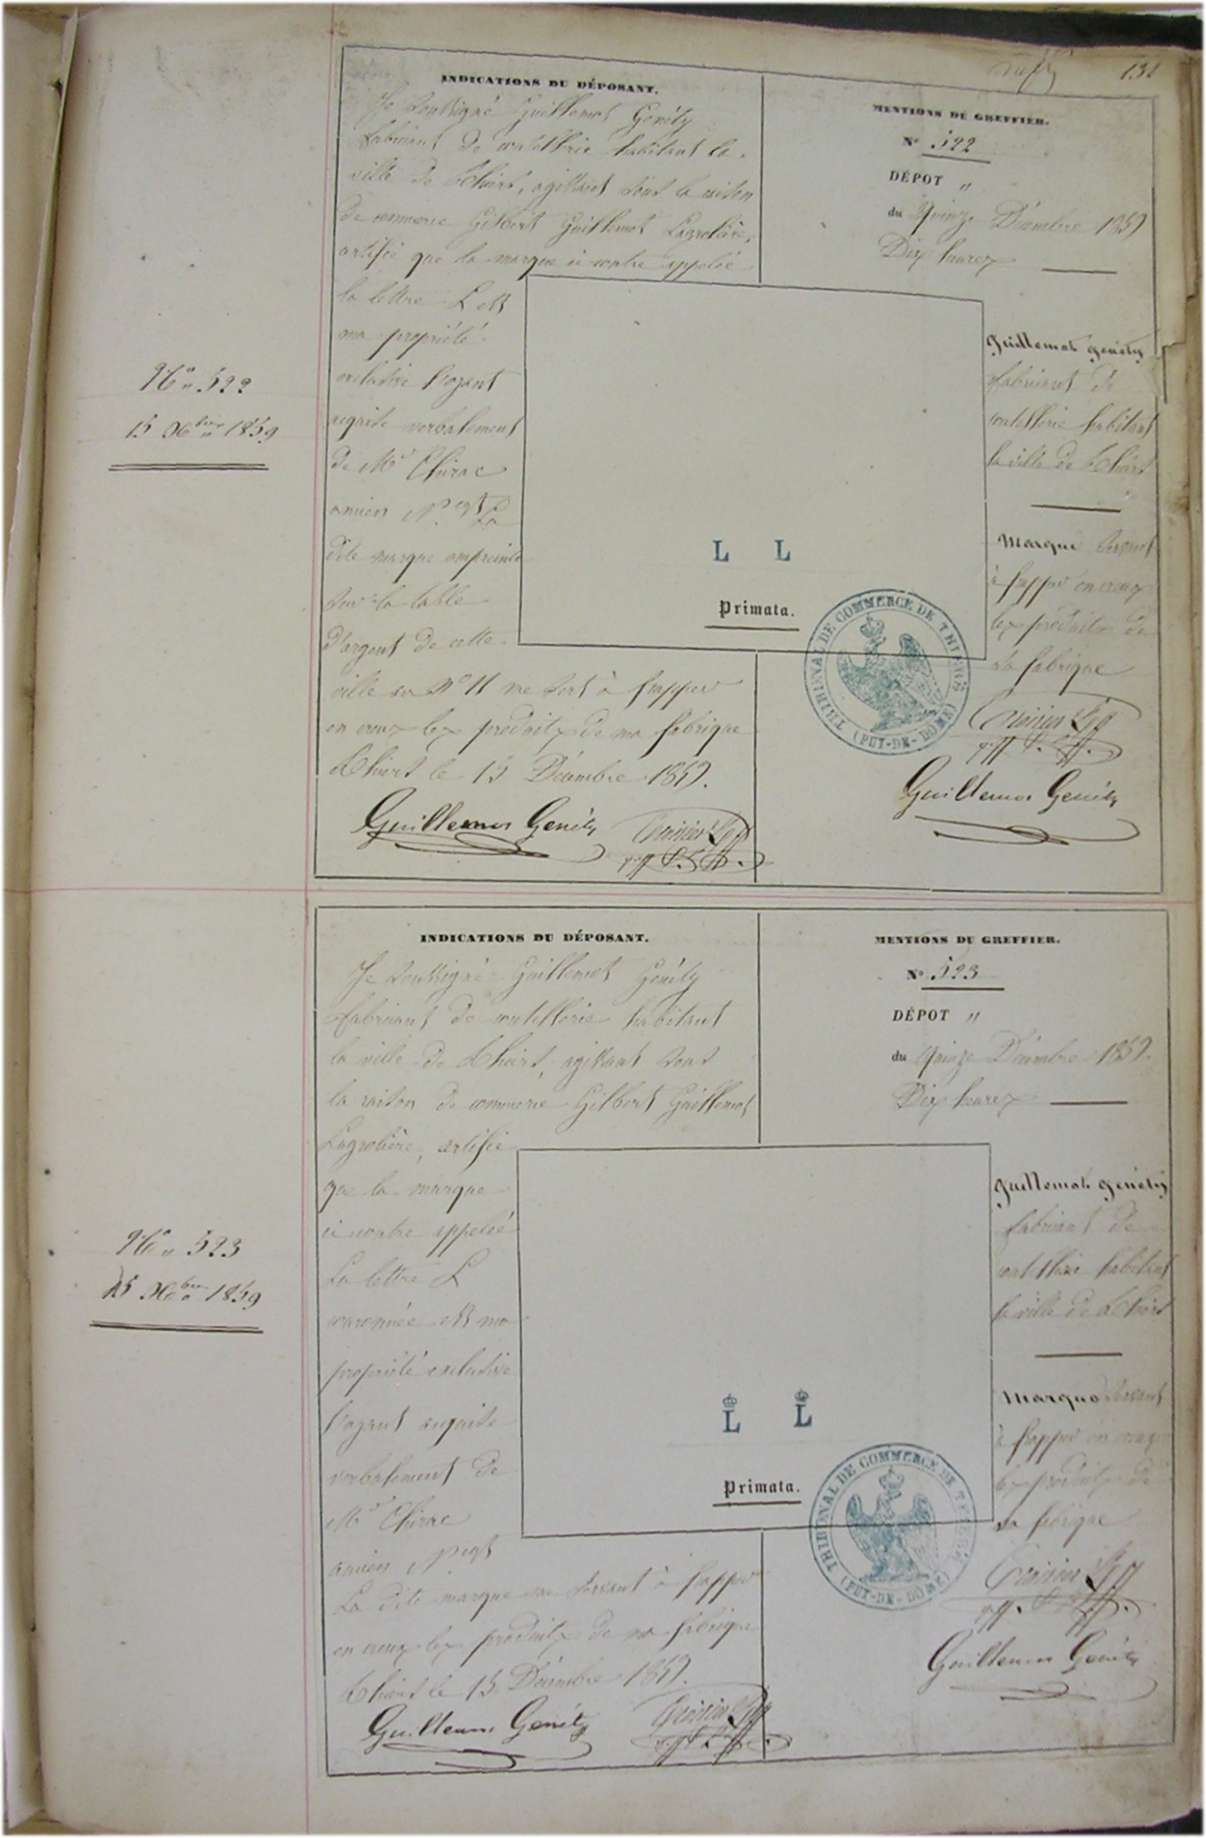 131
N° 522
15 Xbre 1859
INDICATIONS DU DÉPOSANT.
Je soussigné Guillemot Genéty
fabricant de coutellerie habitant la
ville de Thiers, agissant sous la raison
de commerce Gilbert Guillemot Lagrolière,
certifie que la marque ci contre appelée
la lettre L est
ma propriété
exclusive l'ayant
acquise verbalement
de Mr Chirac
ancien Negt La
dite marque empreinte
sur la table
d'argent de cette
ville au N° 11 me sert à frapper
en creux les produits de ma fabrique
Thiers le 15 Décembre 1859.
Guillemot Genéty
L L
Primata.
MENTIONS DU GREFFIER.
N° 522
DÉPOT "
du Quinze Décembre 1859
Dix heures
Guillemot Genéty
fabricant de
coutellerie habitant
la ville de Thiers
Marque servant
à frapper en creux
les produits de
sa fabrique
TRIBUNAL DE COMMERCE DE THIERS
(PUY-DE-DÔME)
Guillemot Genéty
N° 523
15 Xbre 1859
INDICATIONS DU DÉPOSANT.
Je soussigné Guillemot Genéty
fabricant de coutellerie habitant
la ville de Thiers, agissant sous
la raison de commerce Gilbert Guillemot
Lagrolière, certifie
que la marque
ci contre appelée
La lettre L
couronnée est ma
propriété exclusive
l'ayant acquise
verbalement de
Mr Chirac
ancien Negt
La dite marque me servant à frapper
en creux les produits de ma fabrique
Thiers le 15 Décembre 1859.
Guillemot Genéty
L L
Primata.
MENTIONS DU GREFFIER.
N° 523
DÉPOT "
du Quinze Décembre 1859.
Dix heures
Guillemot Genéty
fabricant de
coutellerie habitant
la ville de Thiers
Marque servant
à frapper en creux
les produits de
sa fabrique
TRIBUNAL DE COMMERCE DE THIERS
(PUY-DE-DÔME)
Guillemot Genéty